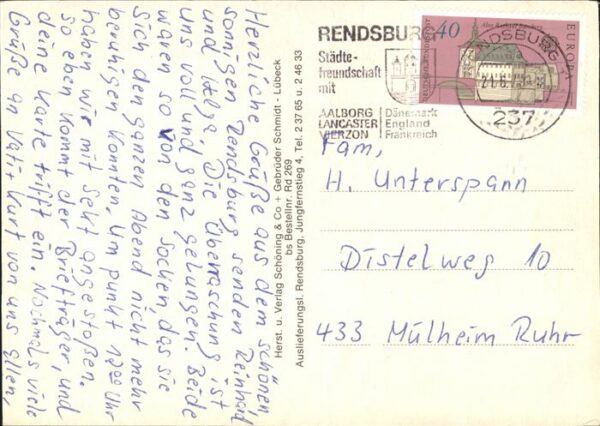 Herzliche Grüße aus dem schönen
sonnigen Rendsburg senden Reinhard
und Helga. Die Überraschung ist
uns voll und ganz gelungen. Beide
waren so von den socken das sie
sich den ganzen Abend nicht mehr
beruhigen konnten. Um punkt 12ºº Uhr
haben wir mit Sekt angestoßen.
so eben kommt der Briefträger, und
deine Karte trifft ein. Nochmals viele
Grüße an Vati + Kurt von uns allen,
Herst. u. Verlag Schöning & Co + Gebrüder Schmidt - Lübeck
bs Bestellnr. Rd 269
Auslieferungsl. Rendsburg, Jungfernstieg 4, Tel. 2 37 65 u. 2 46 33
RENDSBURG
Städte-
freundschaft
mit
AALBORG Dänemark
LANCASTER England
VIERZON Frankreich
40
EUROPA
RENDSBURG
237
Fam,
H. Unterspann
Distelweg 10
433 Mülheim Ruhr